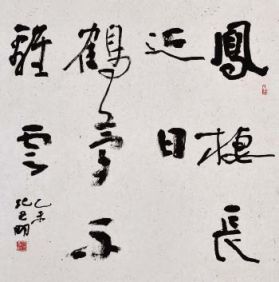 鳳棲長
近日
鶴夢不
離雲
乙未